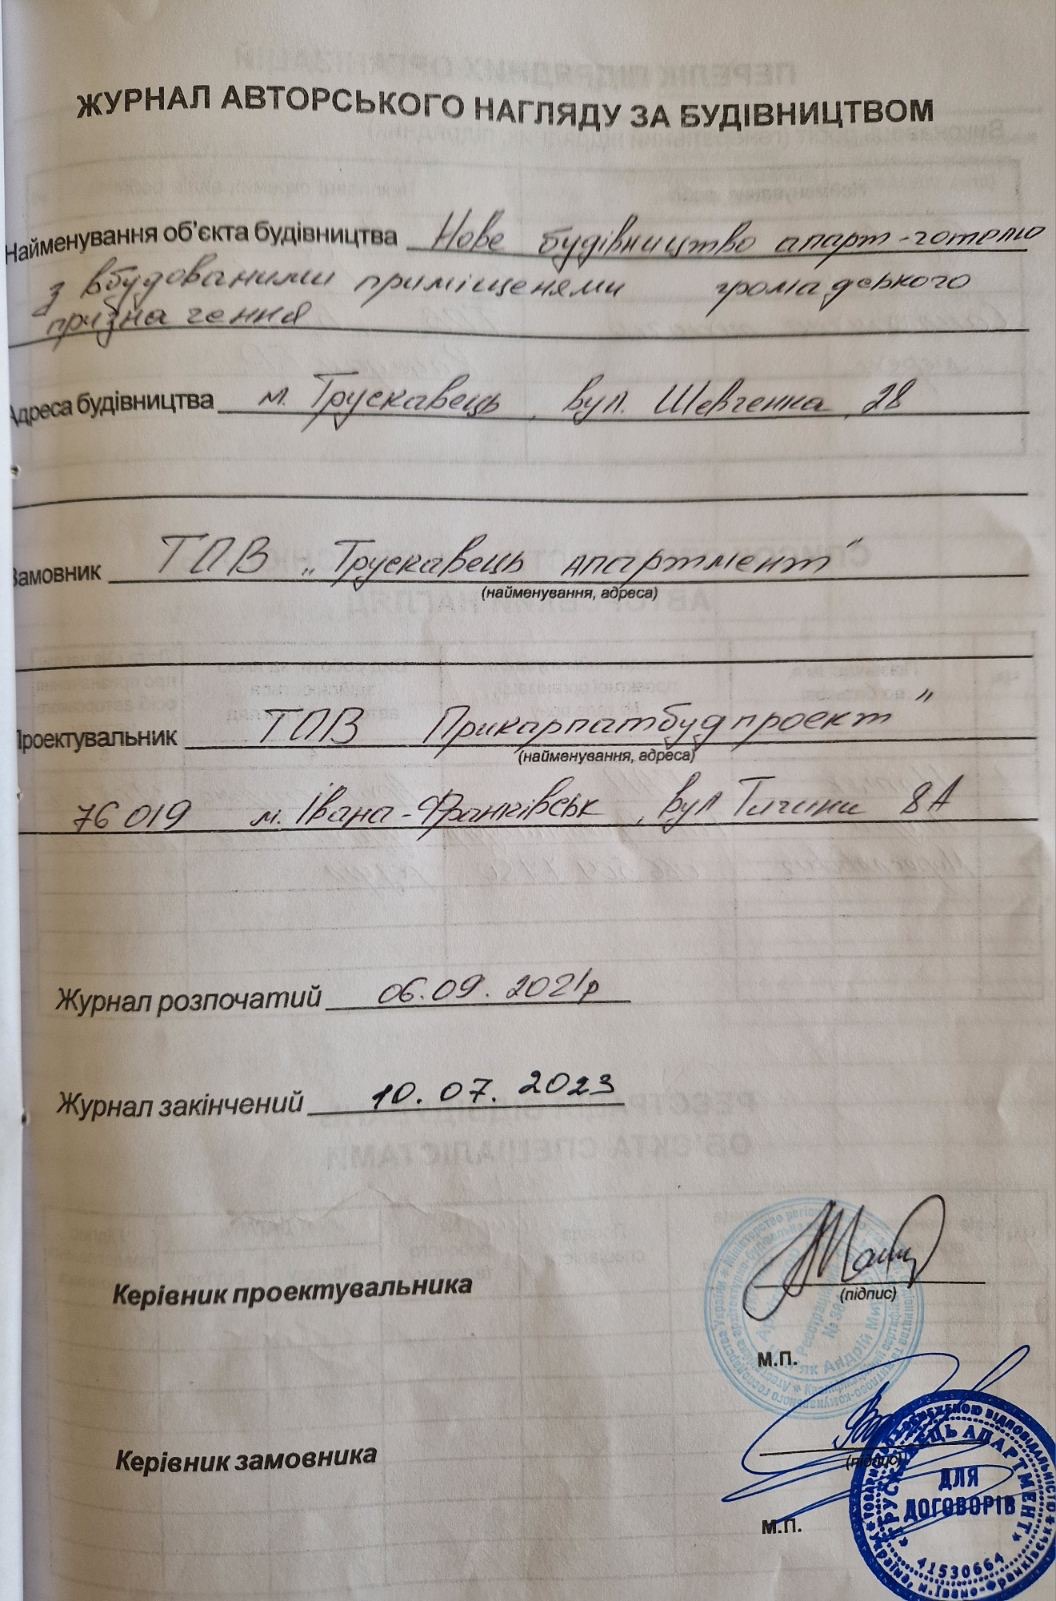 ЖУРНАЛ АВТОРСЬКОГО НАГЛЯДУ ЗА БУДІВНИЦТВОМ
Найменування об'єкта будівництва Нове будівництво апарт-готелю
з вбудованими приміщенями громадського
призначення
Адреса будівництва м. Трускавець, вул. Шевченка, 28
Замовник ТОВ „Трускавець апартмент"
(найменування, адреса)
Проектувальник ТОВ Прикарпатбудпроект"
(найменування, адреса)
76019 м. Івана-Франківськ, вул Тичини 8А
Журнал розпочатий 06.09.2021р
Журнал закінчений 10.07.2023
Керівник проектувальника
(підпис)
М.П.
Керівник замовника
(підпис)
М.П.
ТРУСКАВЕЦЬ АПАРТМЕНТ
ДЛЯ
ДОГОВОРІВ
41530664
Україна, м. Івано-Франківськ